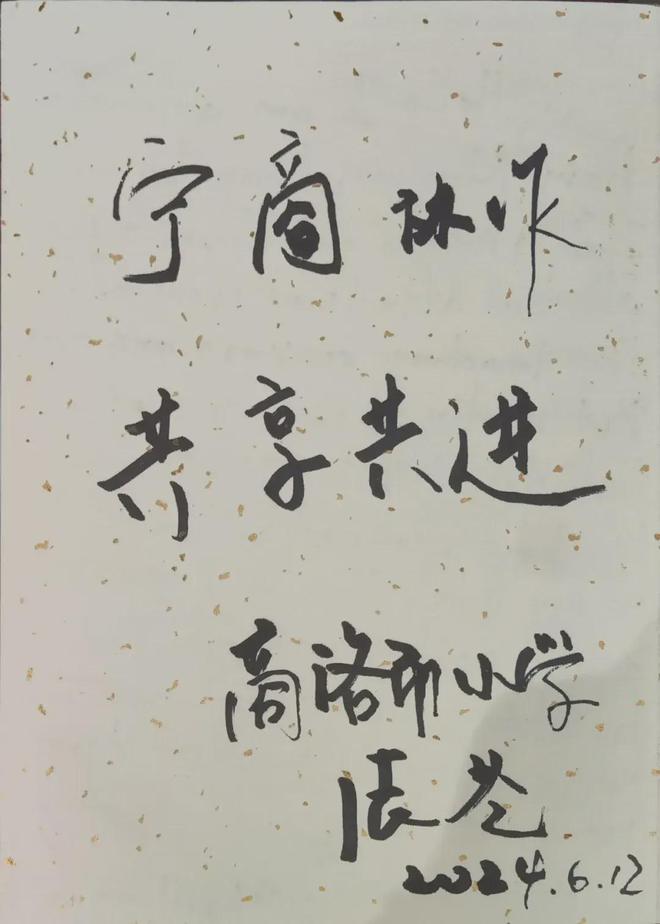 宁商协作
共享共进
商洛市小学
张
2024.6.12